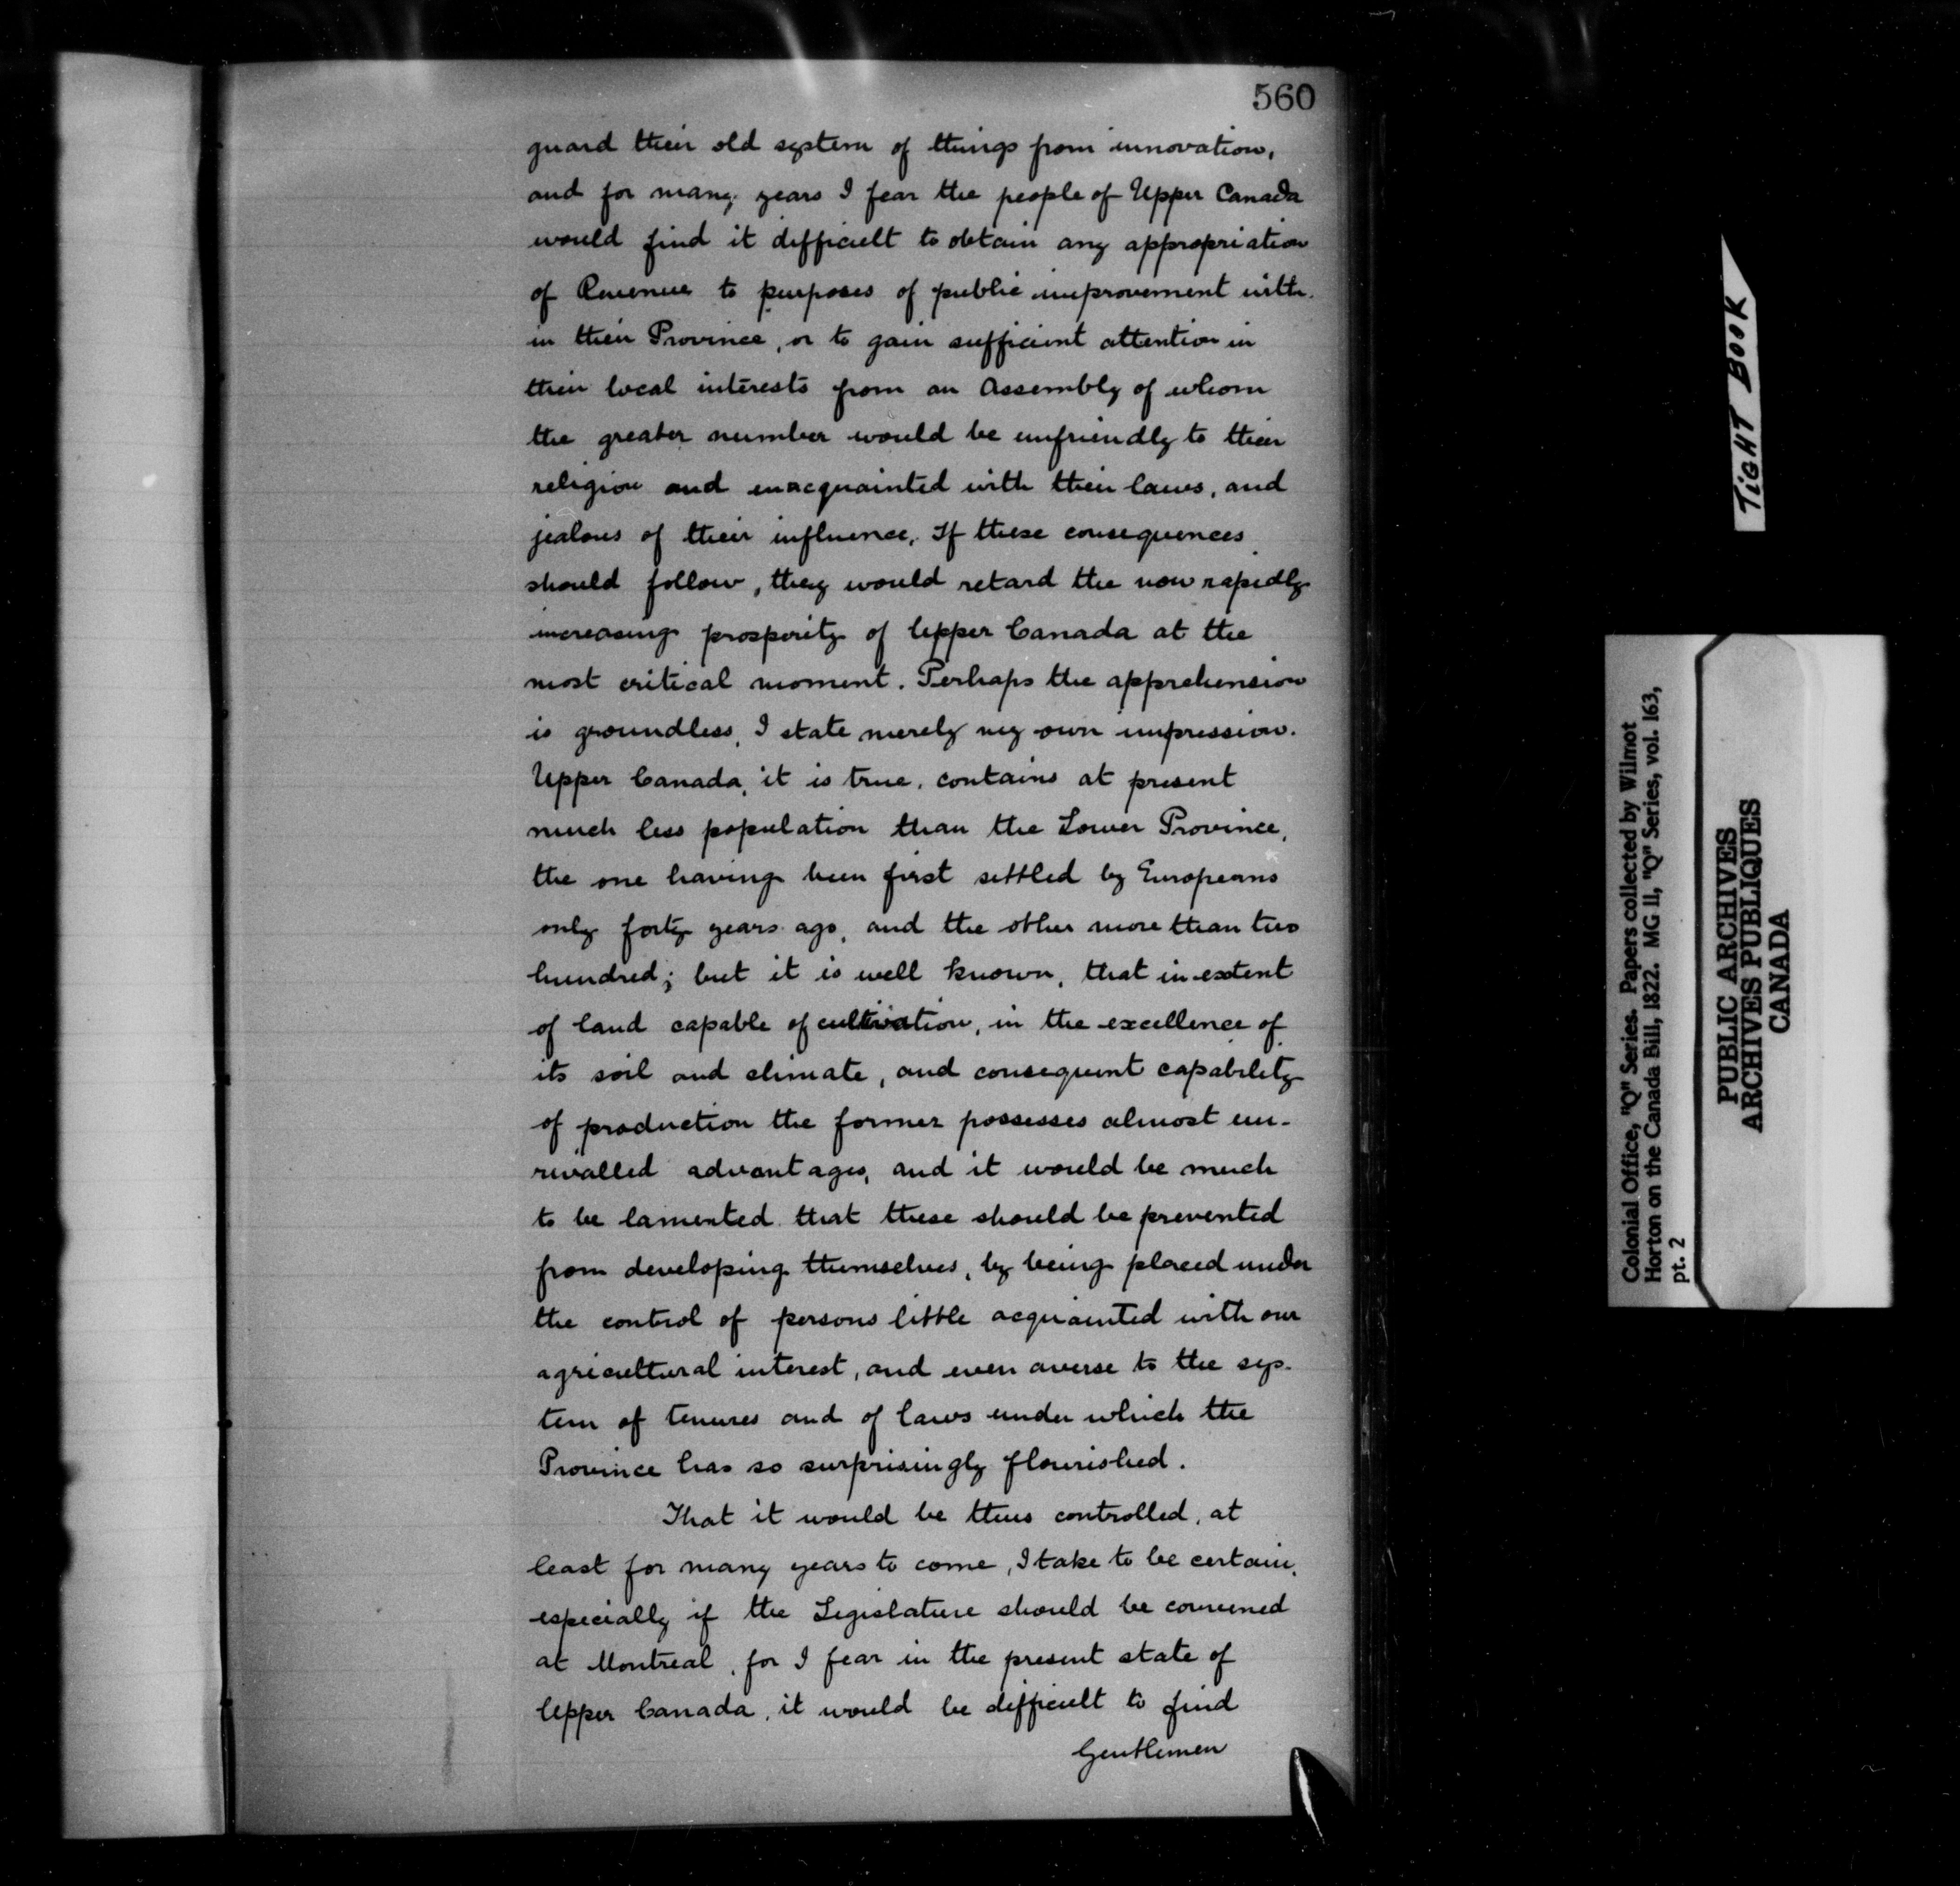 560
guard their old system of things from innovation,
and for many years I fear the people of Upper Canada
would find it difficult to obtain any appropriation
of Revenue to purposes of public improvement with-
in their Province, or to gain sufficient attention in
their local interests from an Assembly of whom
the greater number would be unfriendly to their
religion and unacquainted with their laws, and
jealous of their influence, If these consequences
should follow, they would retard the now rapidly
increasing prosperity of Upper Canada at the
most critical moment. Perhaps the apprehension
is groundless, I state merely my own impression.
Upper Canada, it is true, contains at present
much less population than the Lower Province,
the one having been first settled by Europeans
only forty years ago, and the other more than two
hundred; but it is well known, that in extent
of land capable of cultivation, in the excellence of
its soil and climate, and consequent capability
of production the former possesses almost un-
rivalled advantages, and it would be much
to be lamented that these should be prevented
from developing themselves, by being placed under
the control of persons little acquainted with our
agricultural interest, and even averse to the sys-
tem of tenures and of laws under which the
Province has so surprisingly flourished.
That it would be thus controlled, at
least for many years to come, I take to be certain,
especially if the Legislature should be convened
at Montreal, for I fear in the present state of
Upper Canada, it would be difficult to find
Gentlemen
TIGHT BOOK
Colonial Office, "Q" Series. Papers collected by Wilmot
Horton on the Canada Bill, 1822. MG 11, "Q" Series, vol. 163,
pt. 2
PUBLIC ARCHIVES
ARCHIVES PUBLIQUES
CANADA